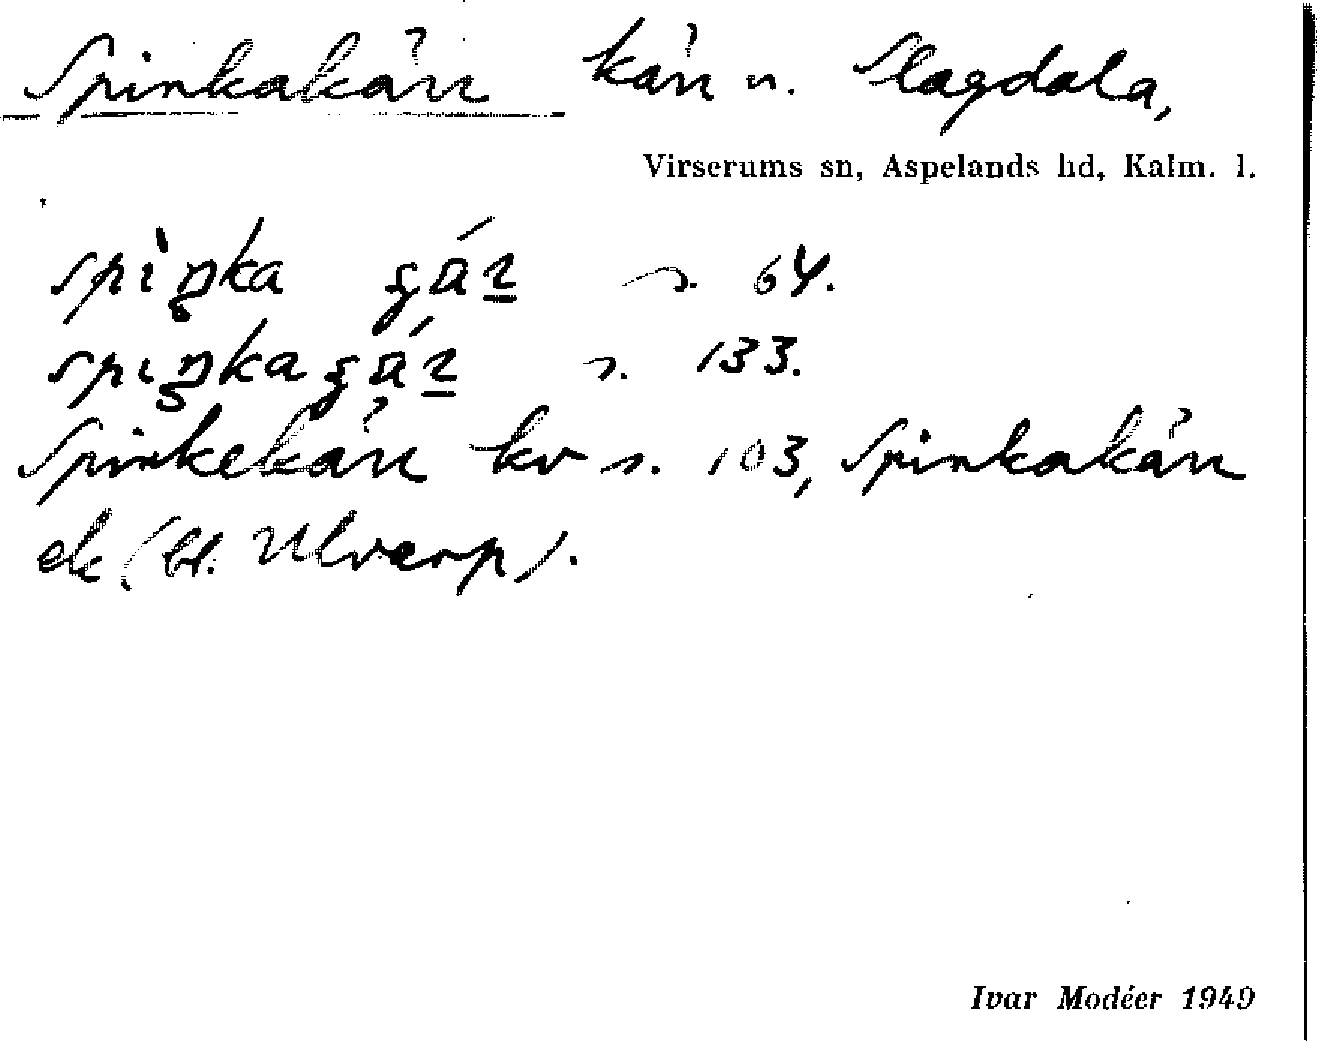 Spinkakärr kärr n. Slagdala,
Virserums sn, Aspelands hd, Kalm. l.
s. 64.
s. 133.
Spinkekärr kv s. 103, Spinkakärr
ek (bl. Ulverp).
Ivar Modéer 1949